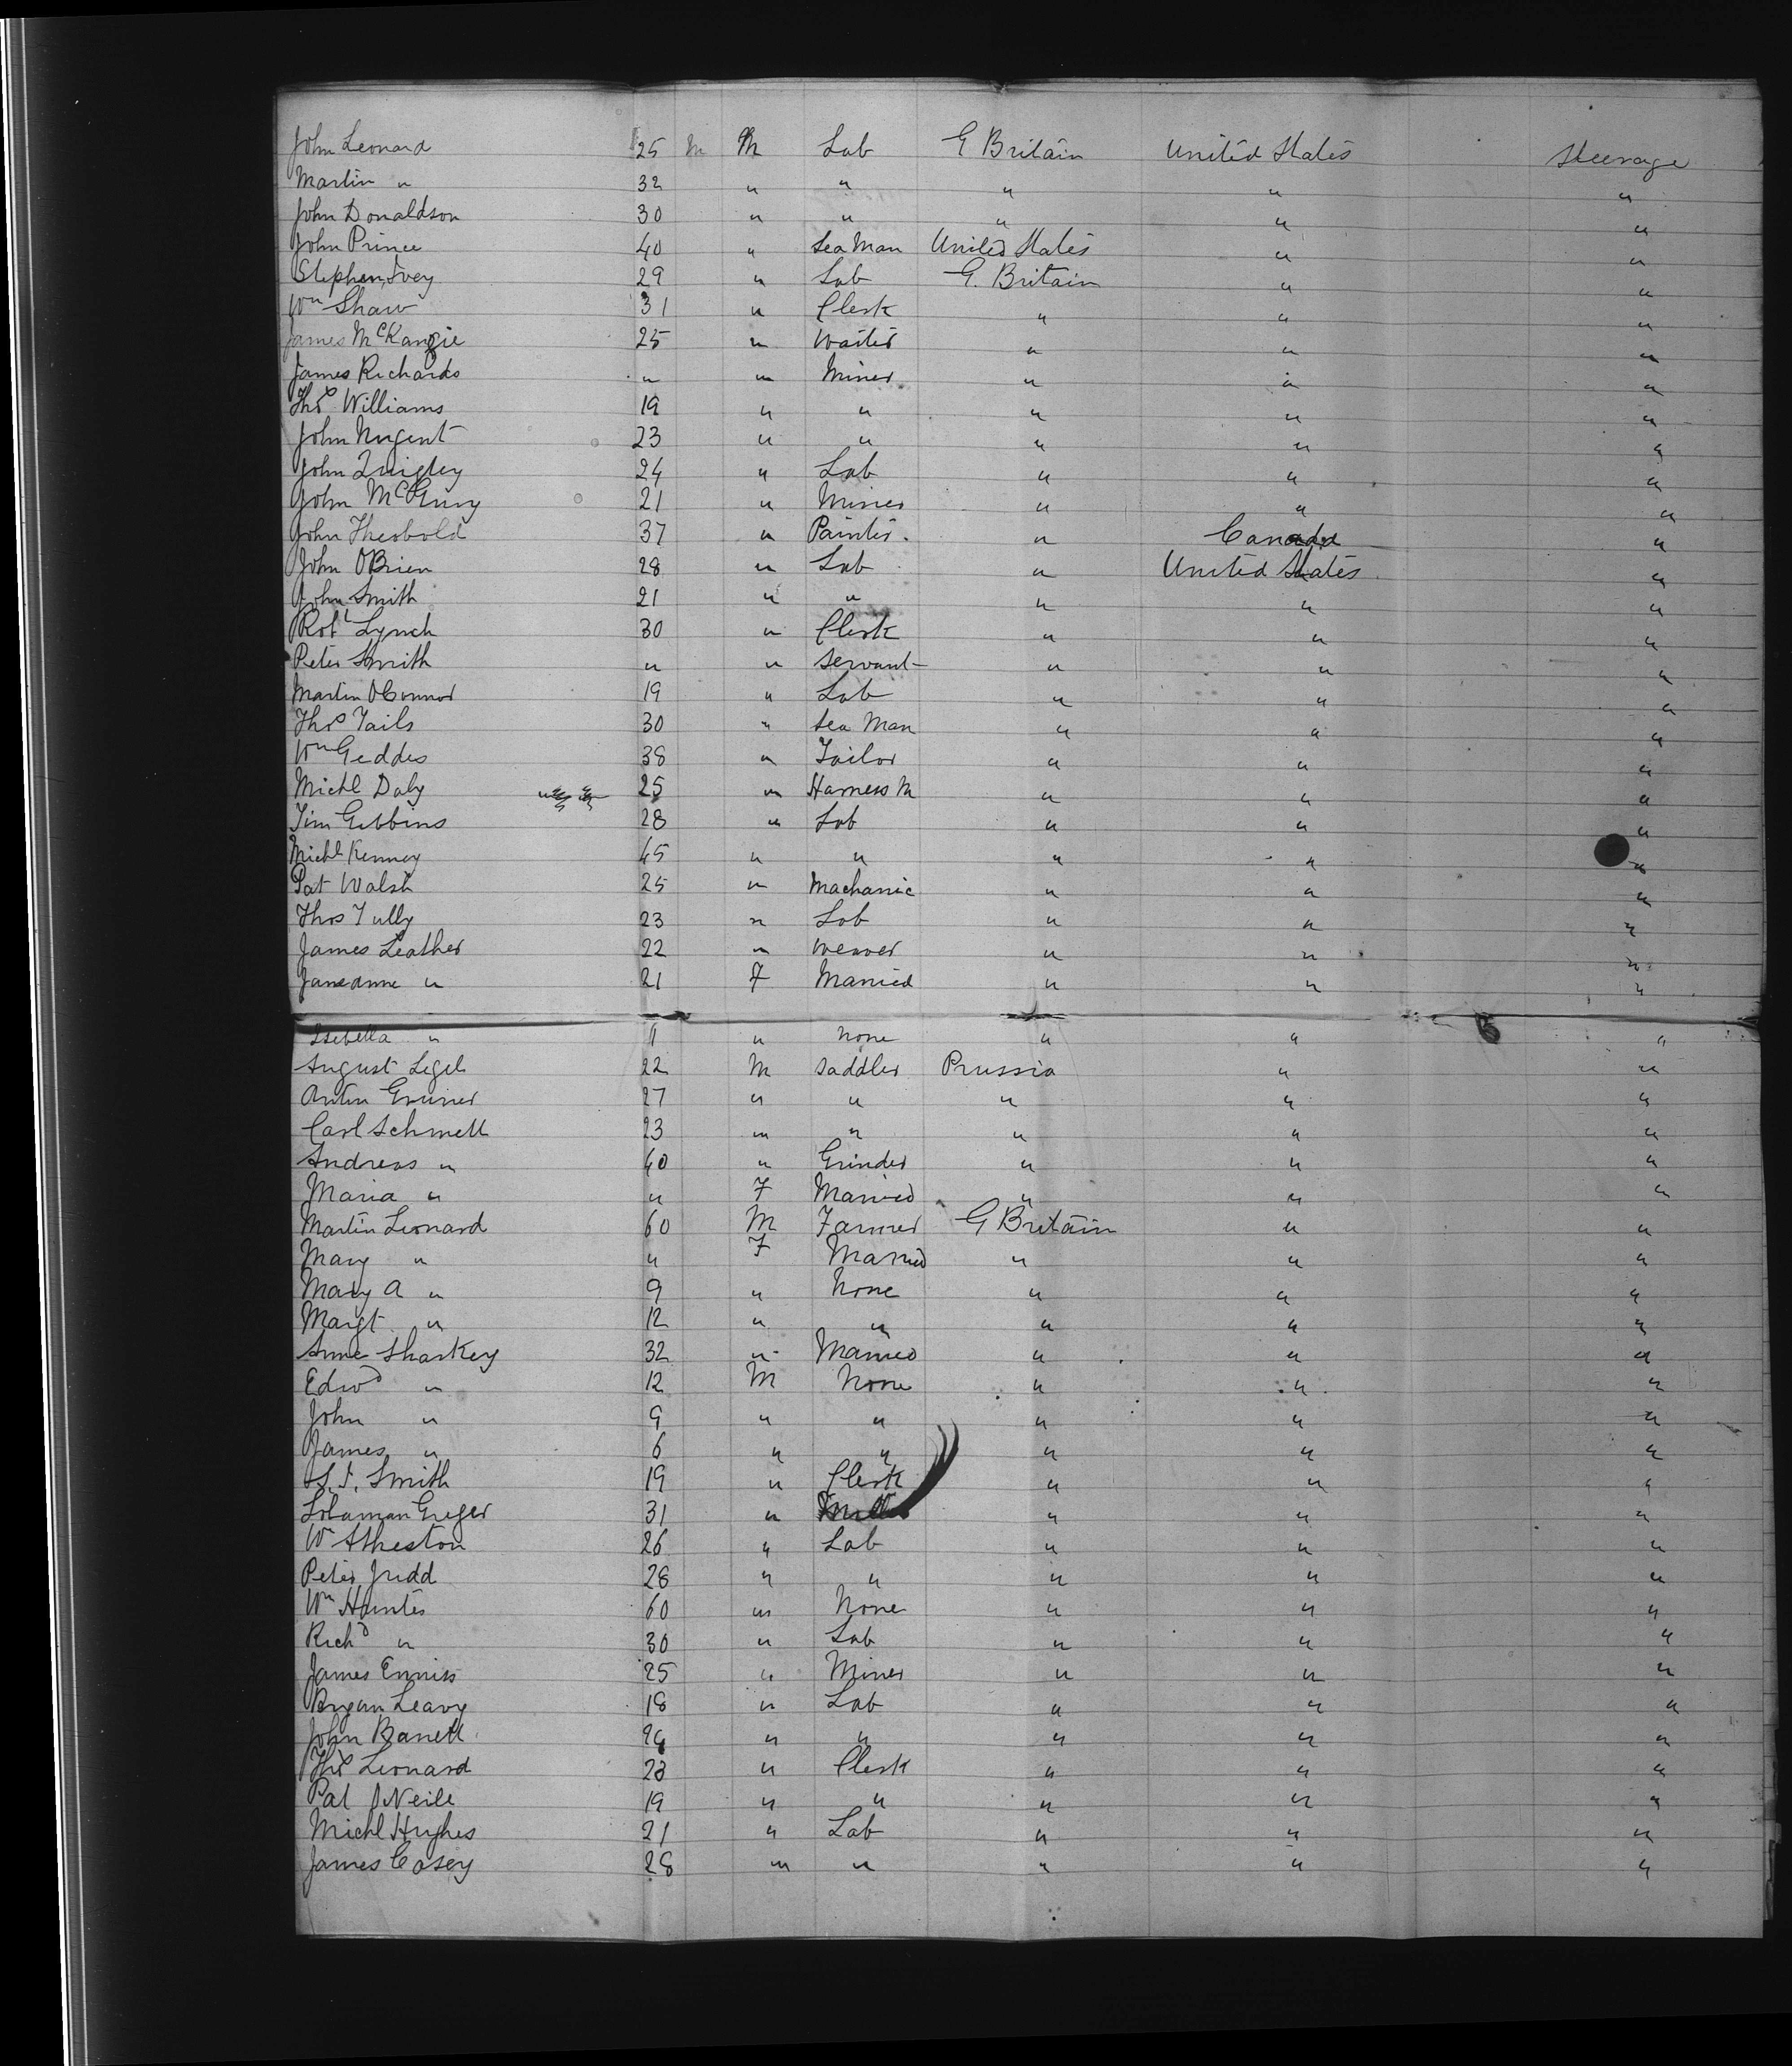 John Leonard 25 M M Lab G Britain United States Steerage
Martin " 32 " " " " "
John Donaldson 30 " " " " "
John Prince 40 " Sea Man United States " "
Stephen Ivey 29 " Lab G. Britain " "
Wm Shaw 31 " Clerk " " "
James McKanzie 25 " Waiter " " "
James Richards " " Miner " " "
Thos Williams 19 " " " " "
John Nugent 23 " " " " "
John Quigley 24 " Lab " " "
John 21 " Miner " " "
John Theobold 37 " Painter. " Canada "
John OBrien 28 " Lab " United States "
John Smith 21 " " " " "
Robt Lynch 30 " Clerk " " "
Peter Smith " " Servant " " "
Martin OConnor 19 " Lab " " "
Thos Tails 30 " Sea Man " " "
Wm Geddes 38 " Tailor " " "
Michl Daly 25 " Harness M " " "
Tim Gibbins 28 " Lab " " "
Michl Kenney 45 " " " " "
Pat Walsh 25 " Machanic " " "
Thos Tully 23 " Lab " " "
James Leather 22 " Weaver " " "
Janeanne " 21 F Married " " "
Isebella " 1 " None " " "
August Legel 22 M Saddler Prussia " "
Anton Gruner 27 " " " " "
Carl Schmell 23 " " " " "
Andreas " 40 " Grinder " " "
Maria " " F Married " " "
Martin Leonard 60 M Farmer G Britain " "
Mary " " F Married " " "
Mary A " 9 " None " " "
Margt " 12 " " " " "
Anne Sharkey 32 " Married " " "
Edwd " 12 M None " " "
John " 9 " " " " "
James " 6 " " " " "
Smith 19 " Clerk " " "
Solaman Greger 31 " " " "
Wm Atheston 26 " Lab " " "
Peter Judd 28 " " " " "
Wm Hunter 60 " None " " "
Richd " 30 " Lab " " "
James Enniss 25 " Miner " " "
Bryan Leavy 18 " Lab " " "
John Barrett " " " " "
Thos Leonard 23 " Clerk " " "
Pat ONeile 19 " " " " "
Michl Hughes 21 " Lab " " "
James Casey 28 " " " " "